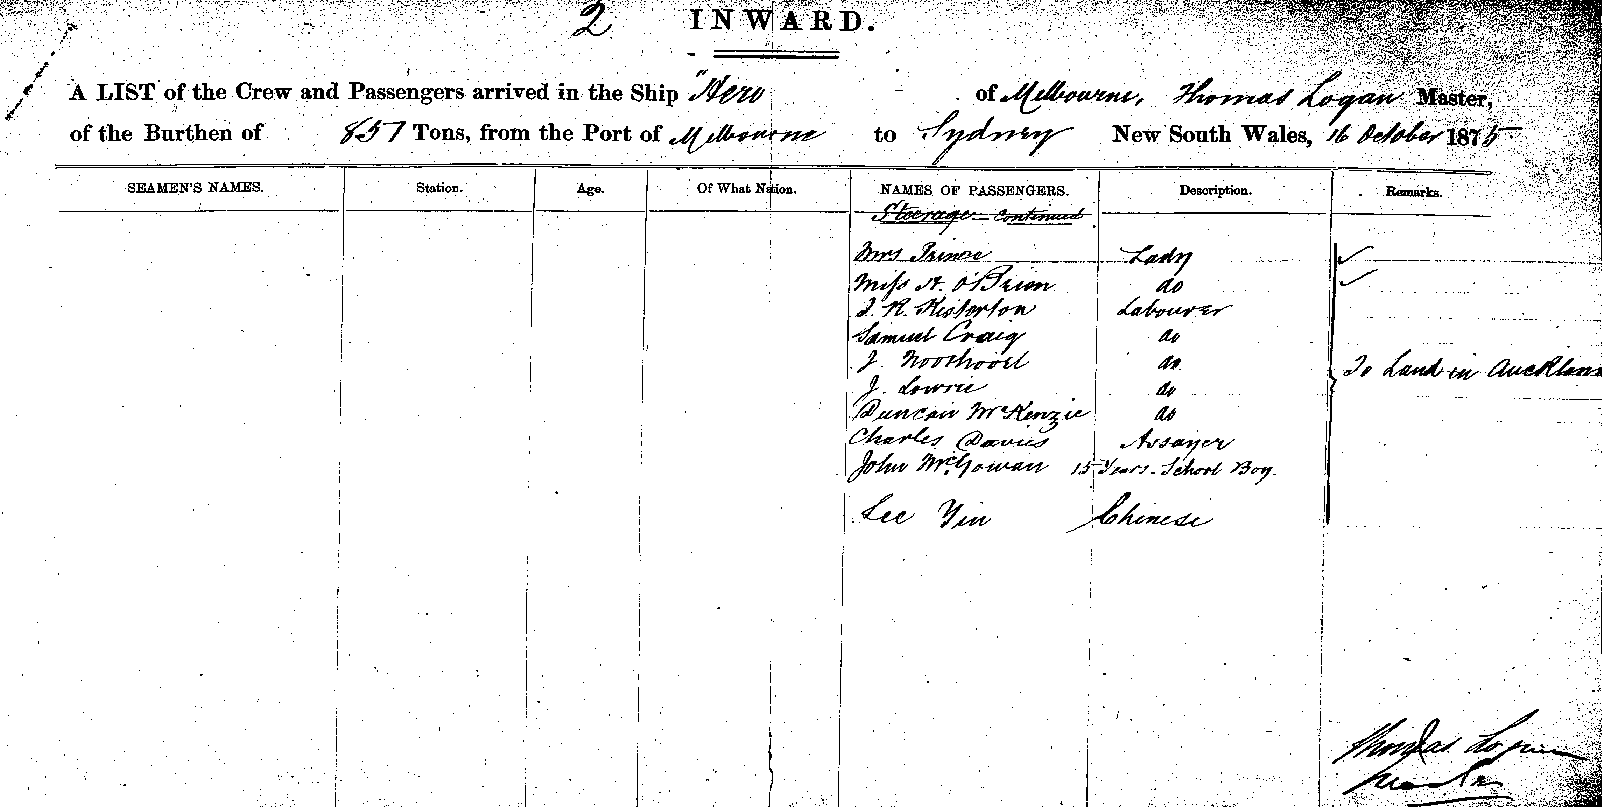 2 INWARD.
A LIST of the Crew and Passengers arrived in the Ship "Hero of Melbourne, Thomas Logan Master,
of the Burthen of 857 Tons, from the Port of Melbourne to Sydney New South Wales, 16 October 1875
SEAMEN'S NAMES. Station. Age. Of What Nation. NAMES OF PASSENGERS. Description. Remarks.
Steerage continued
Mrs Prince Lady
Miss H. O'Brien do
J. R. Labourer
Samuel Craig do
J. do
J. Lowrie do
To Land in Auckland
Duncan McKenzie do
Charles Davies Assayer
John McGowan 15 Years. School Boy.
Lee Yin Chinese
Thomas Logan
Master